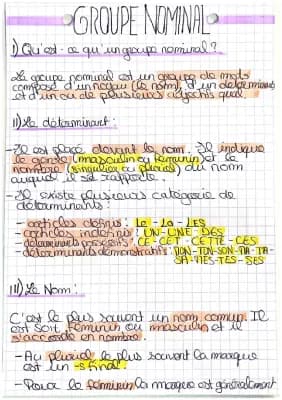 GROUPE NOMINAL
I) Qu'est-ce qu'un groupe nominal ?
Le groupe nominal est un groupe de mots
composé d'un noyau (le nom), d'un déterminant
et d'un ou de plusieurs adjectifs qual.
II) Le déterminant :
- Il est placé devant le nom. Il indique
le genre (masculin ou féminin) et le
nombre (singulier ou pluriel) du nom
auquel il se rapporte.
- Il existe plusieurs catégorie de
déterminants :
- articles définis : LE - LA - LES
- articles indéfinis : UN - UNE - DES
- déterminants possessifs : CE - CET - CETTE - CES
- déterminants démonstratifs : MON - TON - SON - MA - TA -
SA - MES - TES - SES
III) Le Nom :
C'est le plus souvent un nom commun. Il
est soit féminin ou masculin et il
s'accorde en nombre.
- Au pluriel le plus souvent la marque
est un -s final.
- Pour le féminin la marque est généralement